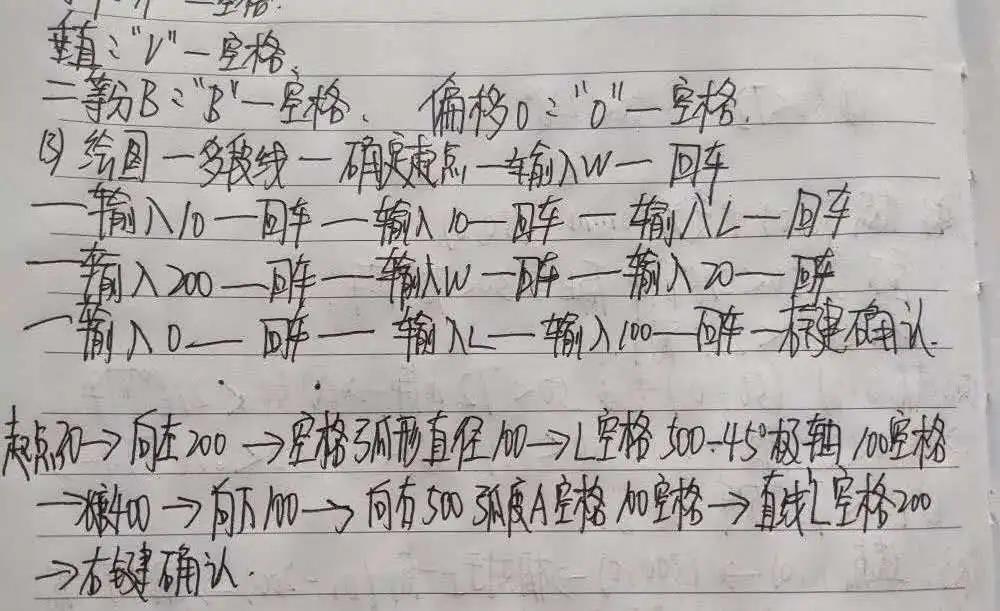 一空格.
垂直："V"一空格、
二等分B："B"一空格、 偏移O："O"一空格.
(3) 绘图一多段线一确定起点一输入W一回车
一输入10一回车一输入10一回车一输入L一回车
一输入200一回车一输入W一回车一输入20一回车
一输入0一回车一输入L一输入100一回车一右键确认.
起点30→向左200→空格弧形直径100→L空格500-45°极轴100空格
→400→向下100→向右500弧度A空格100空格→直线L空格200
→右键确认.